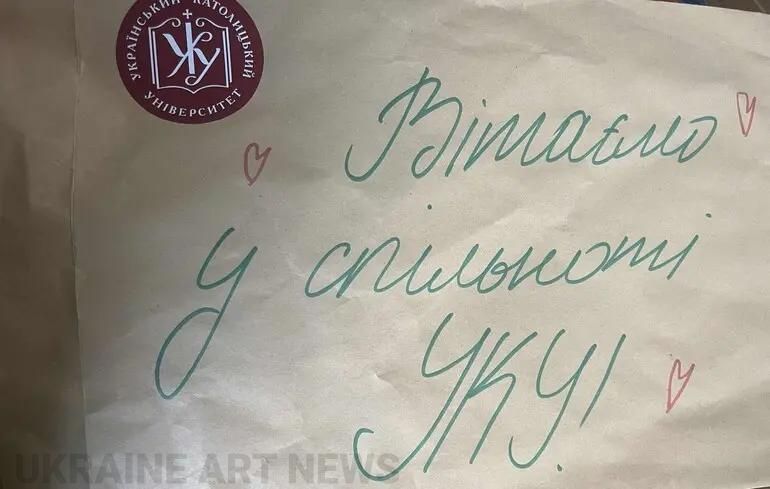 УКРАЇНСЬКИЙ КАТОЛИЦЬКИЙ
УНІВЕРСИТЕТ
УКУ
Вітаємо
у спільноті
УКУ!
UKRAINE ART NEWS